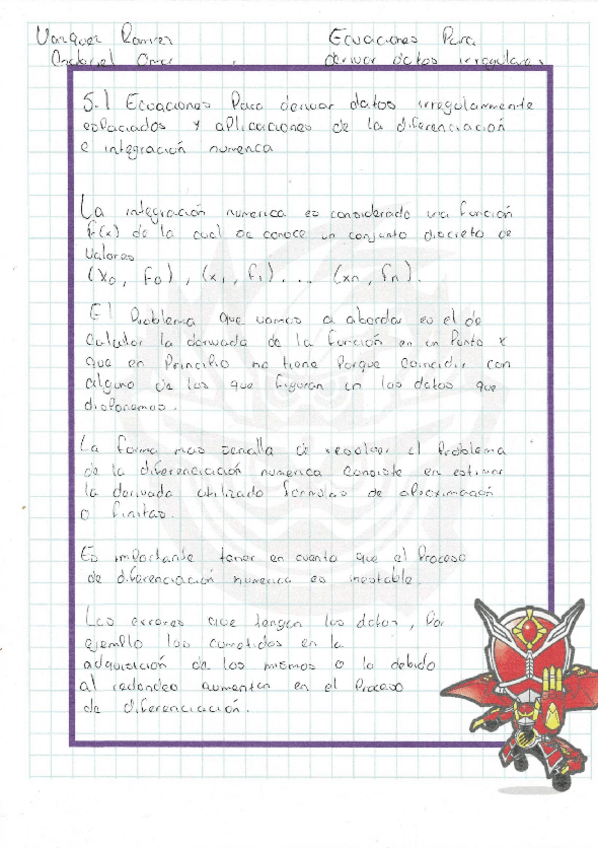 Vazquez Ramirez
Ecuaciones Para
Omar
derivar datos irregulares
5.1 Ecuaciones Para derivar datos irregularmente
espaciados y aplicaciones de la diferenciación
e integración numerica
La integración numerica es considerado una función
f(x) de la cual se conoce un conjunto discreto de
valores
(x0, f0), (x1, f1)... (xn, fn).
El Problema que vamos a abordar es el de
calcular la derivada de la función en un Punto x
que en Principio no tiene Porque coincidir con
alguno de los que figuran en los datos que
disponemos.
La forma mas sencilla de resolver el Problema
de la diferenciación numerica consiste en estimar
la derivada utilizado formulas de aproximación
o finitas.
Es importante tener en cuenta que el Proceso
de diferenciación numerica es inestable.
Los errores que tengan los datos, Por
ejemplo los cometidos en la
adquisición de los mismos o la debido
al redondeo aumentan en el Proceso
de diferenciación.